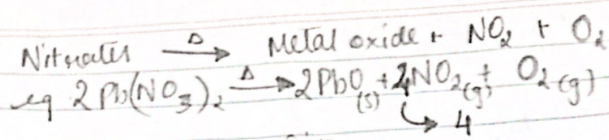 Nitrates →Δ Metal oxide + NO₂ + O₂
eg 2Pb(NO₃)₂ →Δ 2PbO(s) + 4NO₂(g) + O₂(g)
↳ 4